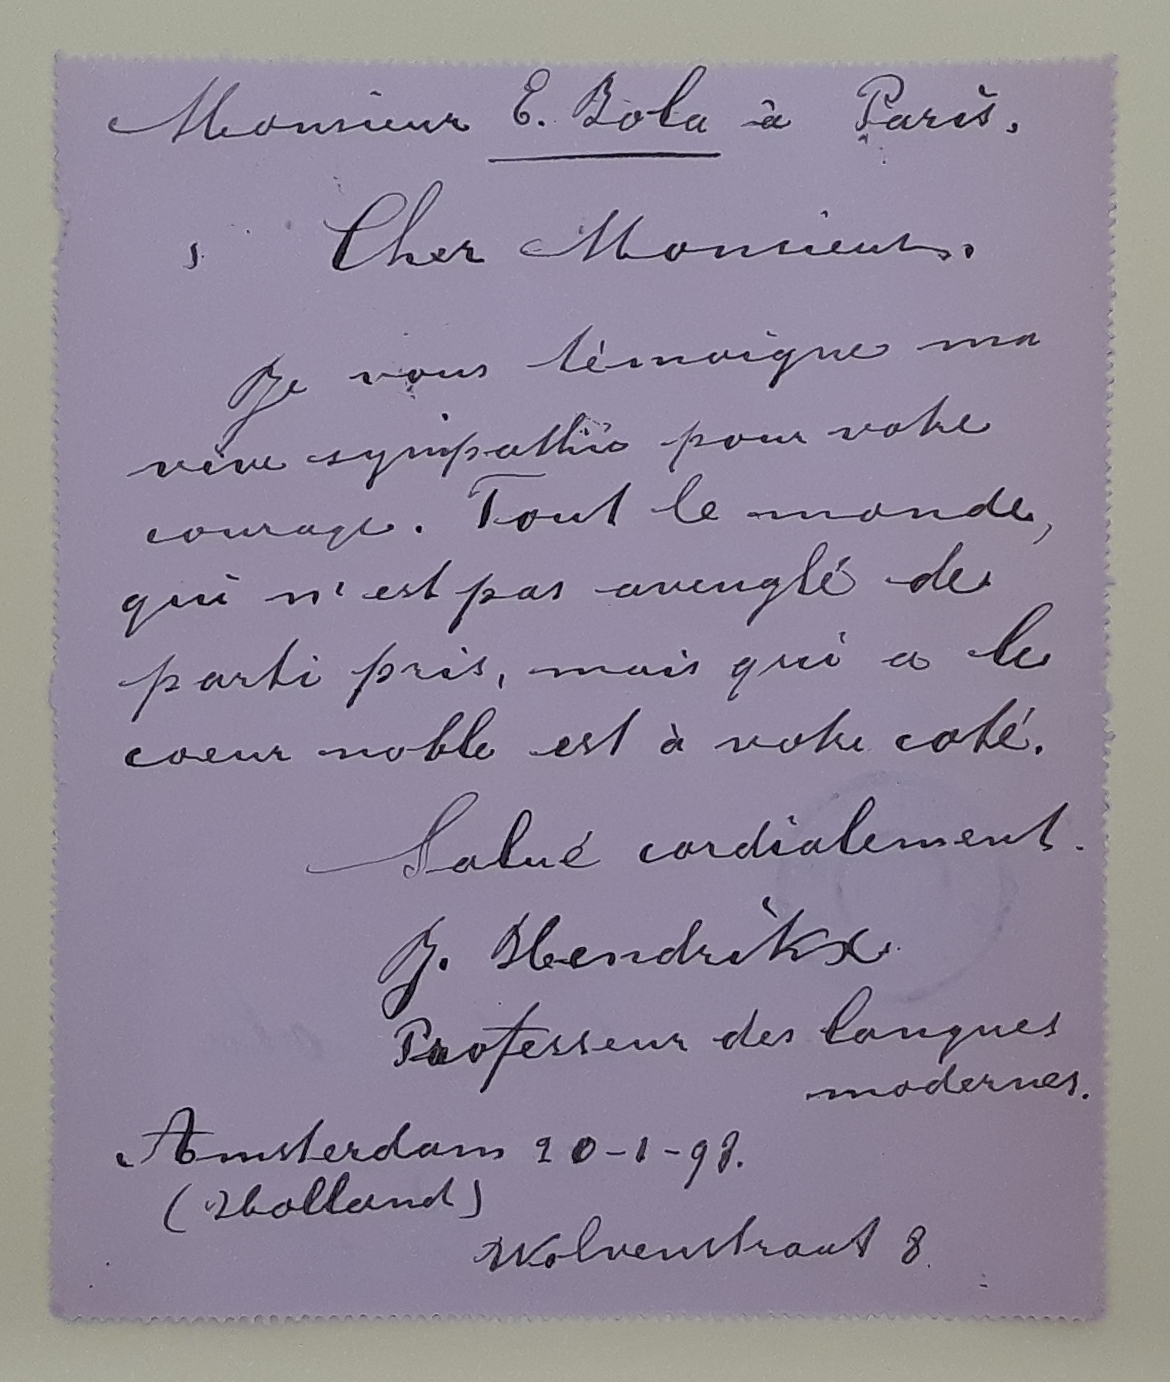 Monsieur E. Zola à Paris.
Cher Monsieur.
Je vous témoigne ma
vive sympathie pour votre
courage. Tout le monde,
qui n'est pas aveuglé de
parti pris, mais qui a le
coeur noble est à votre coté.
Salue cordialement.
J. Hendrikx
Professeur des langues
modernes.
Amsterdam 20-1-98.
(Holland)
Wolvenstraat 8.